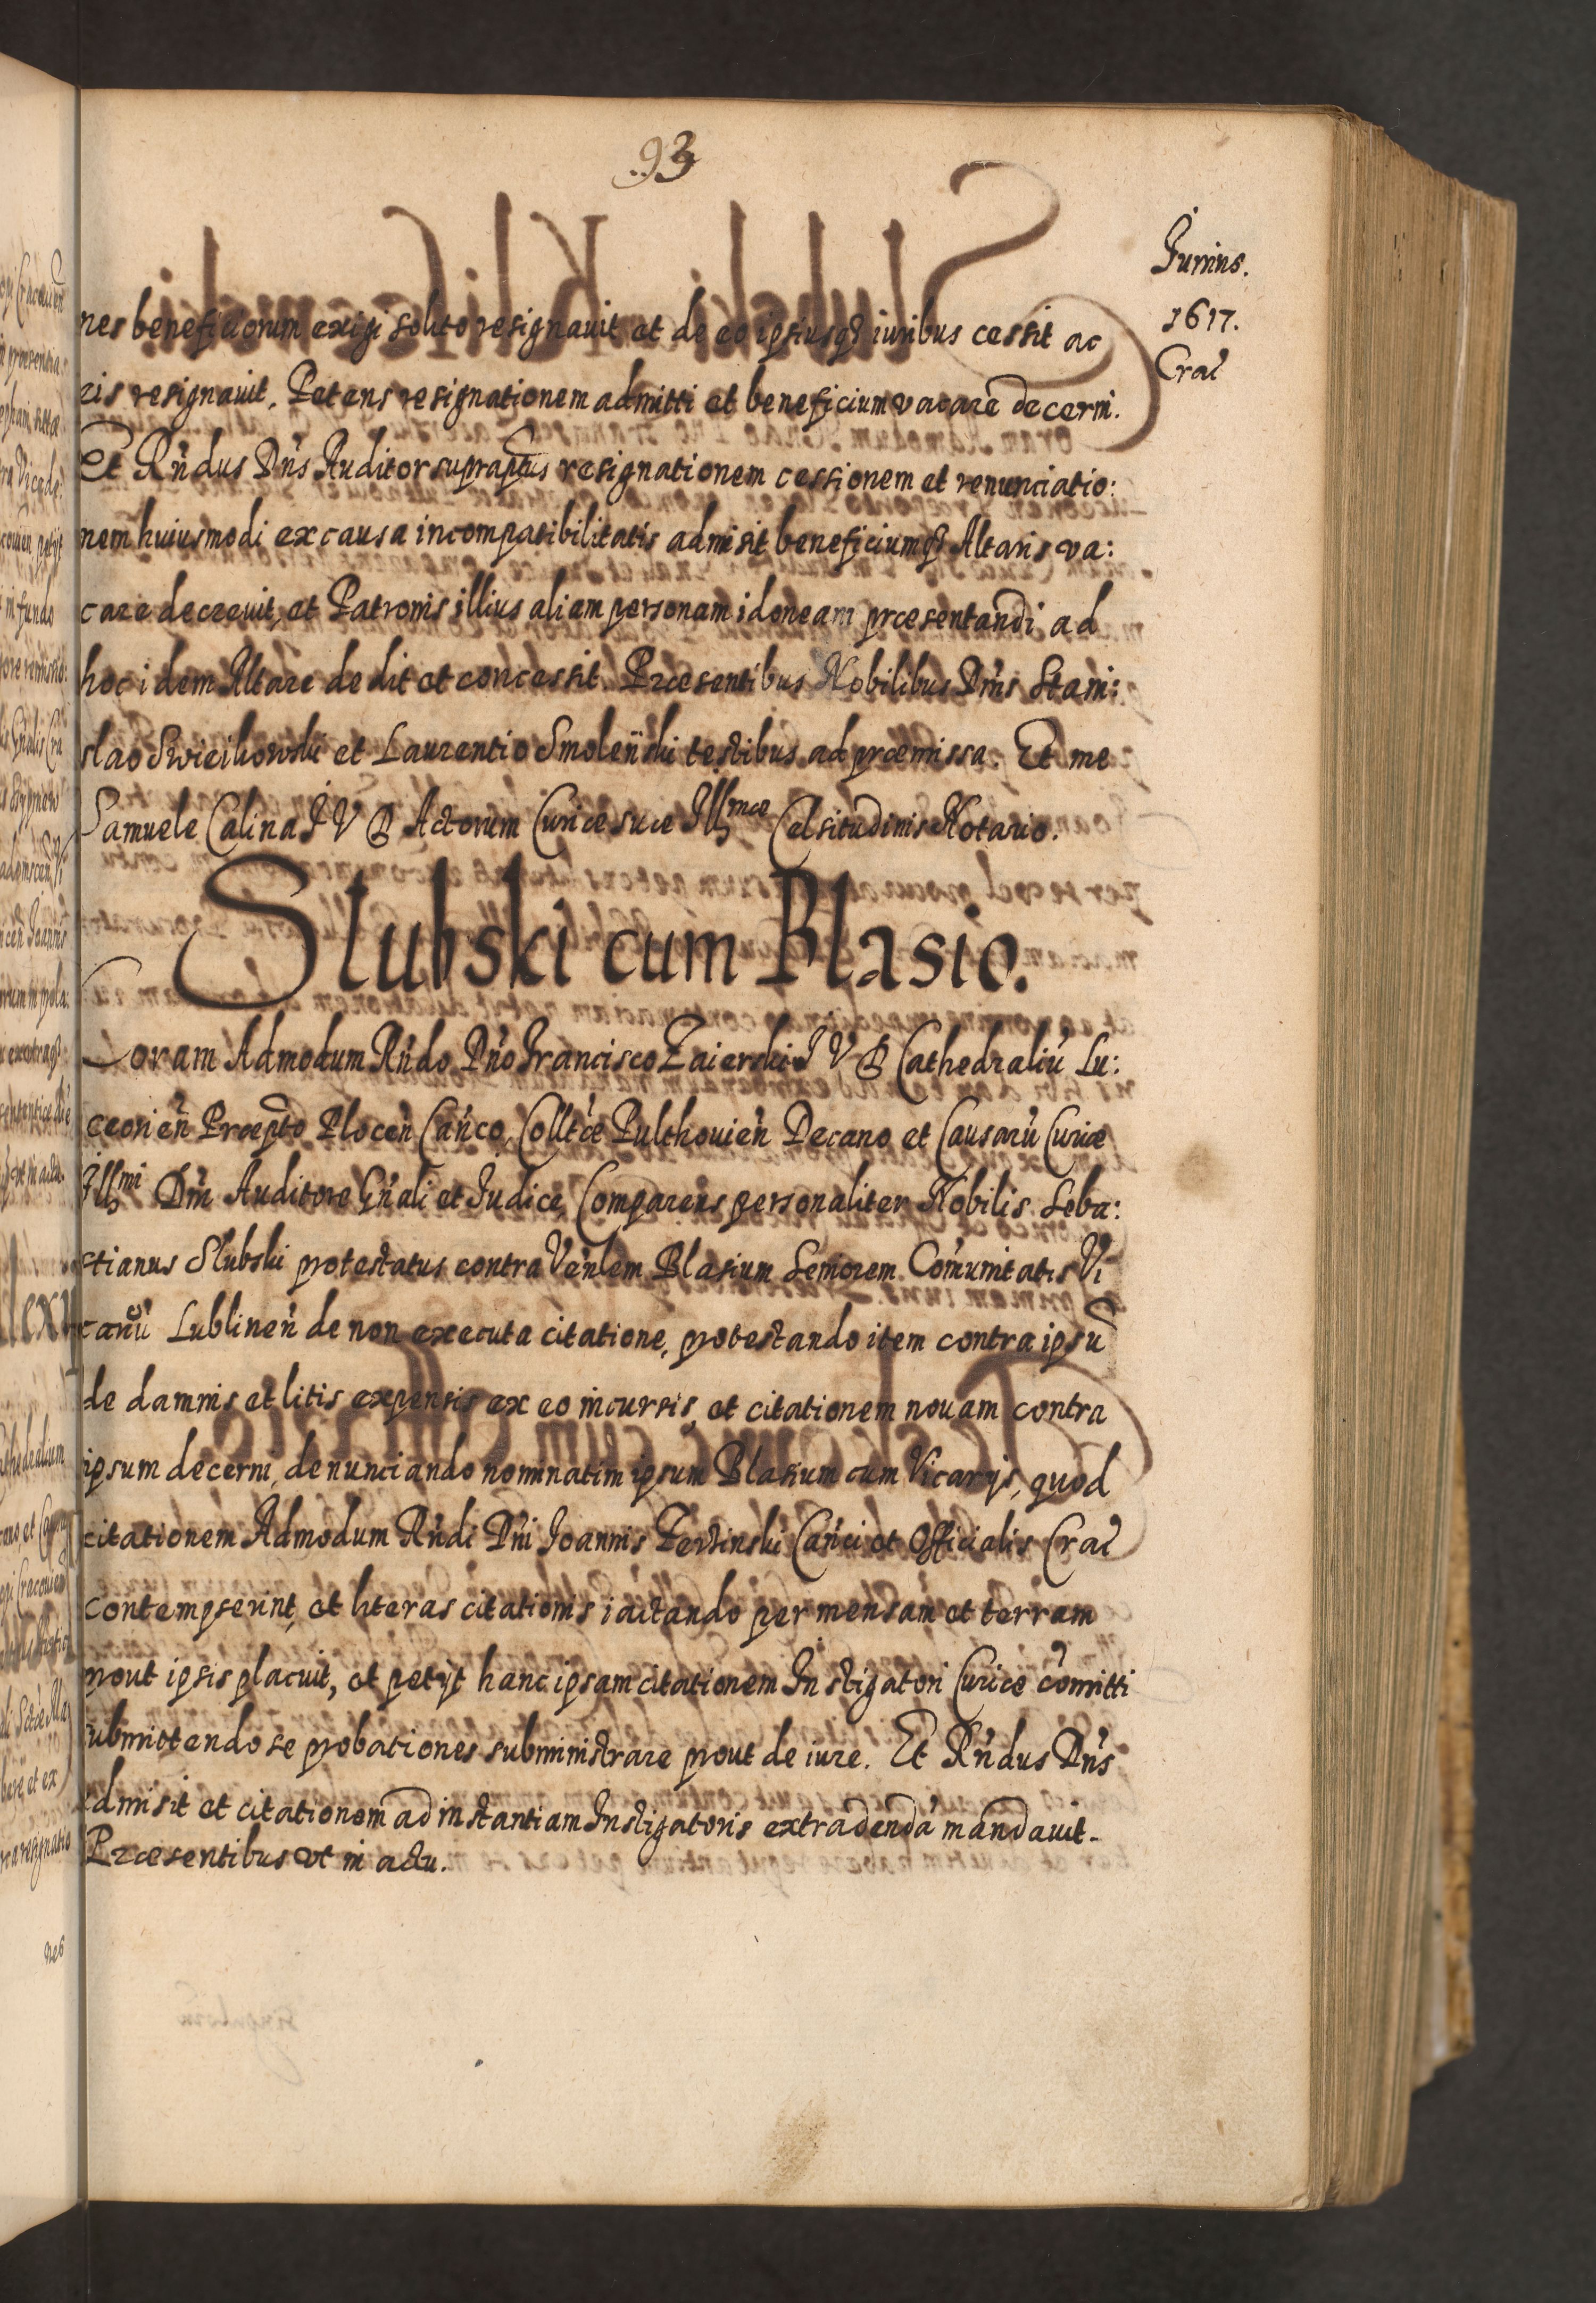 93
Junius.
1617.
Crac
nes beneficiorum exigi solito resignauit et de eo ipsiusq3 iuribus cessit ac
ris resignauit. Petens resignationem admitti et beneficium vacare decerni.
Et Rńdus Dńs Auditor supraptus resignationem cessionem et renunciatio:
nem huiusmodi ex causa incompatibilitatis admisit beneficiumq3 Altaris va:
care decreuit, et Patronis illius aliam personam idoneam præsentandi ad
hoc idem Altare dedit et concessit. Præsentibus Nobilibus Dńis Stani:
slao Swiecikowski et Laurentio Smoleński testibus ad præmissa. Et me
Samuele Calina J V D Actorum Curiæ suæ Illmæ Celsitudinis Notario.
Slubski cum Blasio.
Coram Admodum Rńdo Dńo Francisco Zaierski J V D Cathedraliū Lu:
ceorień Præpto Plocen Cańco, Colltæ Pulthouień Decano et Causarū Curiæ
Illmi Dńi Auditore Gńali et Judice, Comparens personaliter Nobilis Seba:
stianus Slubski protestatus contra Veńlem Blasium Seniorem Comunitatis Vi
carιū Lublineń de non executa citatione, protestando item contra ipsū
de damnis et litis expensis ex eo incursis, et citationem nouam contra
ipsum decerni, denunciando nominatim ipsum Blasium cum Vicarijs, quod
citationem Admodum Rńdi Dńi Joannis Cańci et Officialis Crac
contempserint, et literas citationis iactando per mensam et terram
prout ipsis placuit, et petijt hanc ipsam citationem Instigatori Curiæ comitti
submittendo se probationes subministrare prout de iure. Et Rńdus Dńs
admisit et citationem ad instantiam Instigatoris extradendā mandauit.
Præsentibus vt in actu.